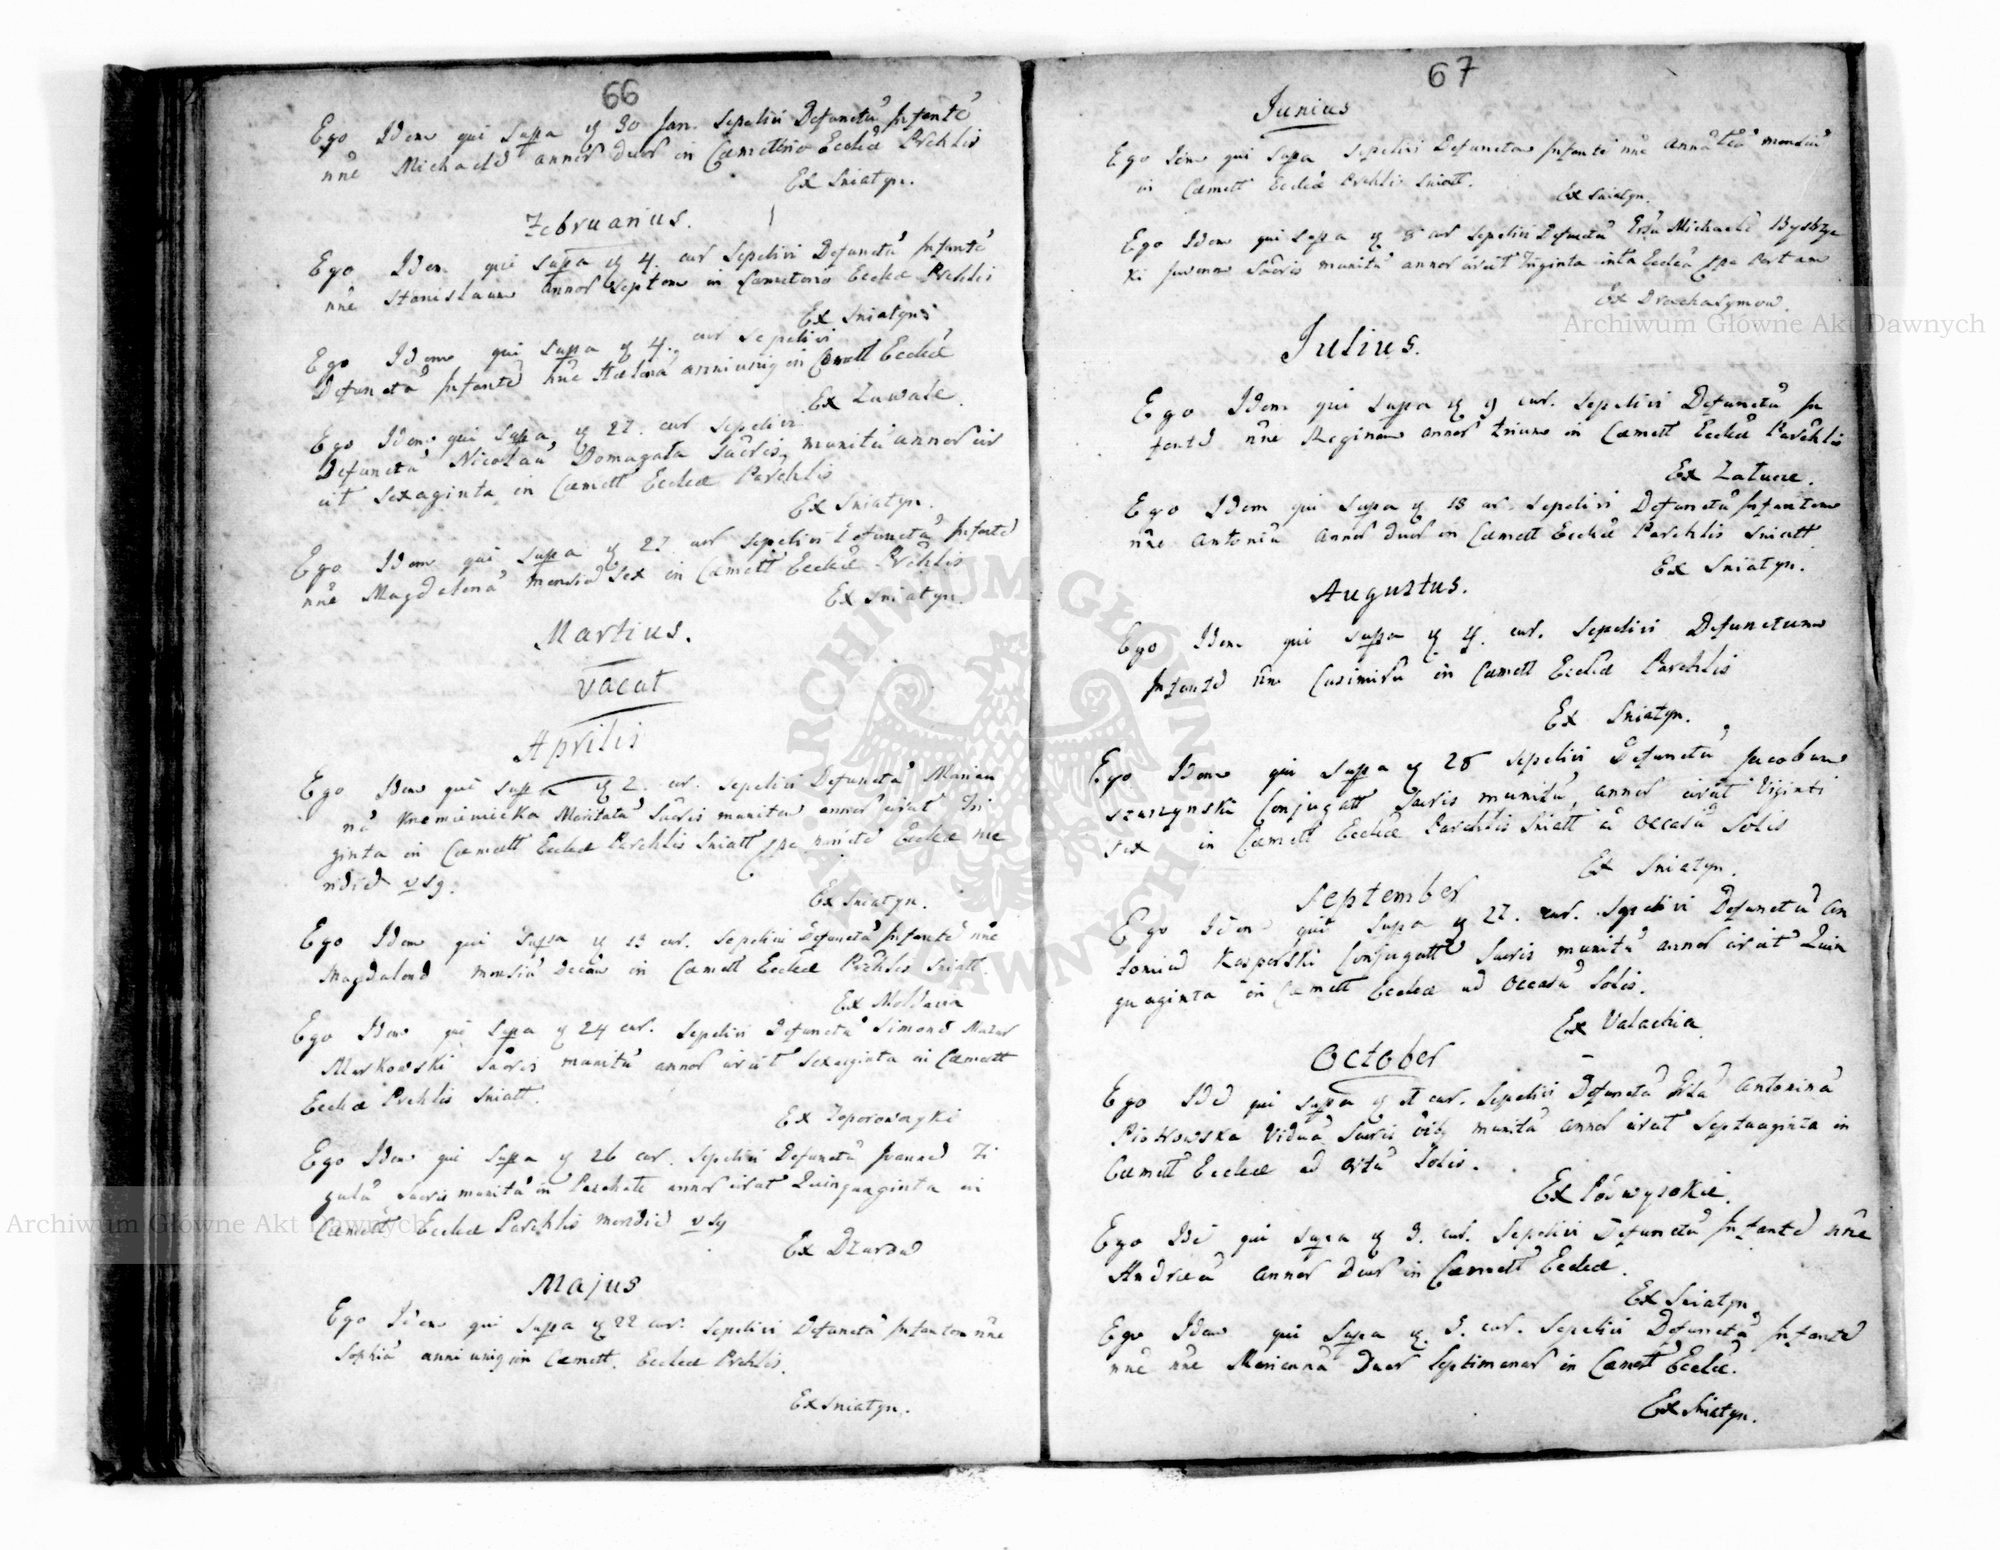 66
Ego Idem qui Supa ꝗ 30 Jan. Sepelivi Defunctũ Infantẽ
nñe Michaelẽ annor duor in Cæmetterio Ecclæ Prchlis
Ex Sniatyn.
Februarius.
Ego Idem qui Supa ꝗ 4. cur Sepelivi Defunctũ Infantẽ
nñe Stanislaum annor Septem in Cæmeterio Ecclæ Prchlis
Ex Sniatyn
Ego Idem qui Supa ꝗ 4. cur Sepelivi
Defunctã Infantẽ nñe Helenã anni unig in Cæmett Ecclæ
Ex Zawale.
Ego Idem qui Supa ꝗ 27. cur Sepelivi
Defunctũ Nicolaũ Domagała Sacris munitũ annor cir
cit Sexaginta in Cæmett Ecclæ Parchlis
Ex Sniatyn.
Ego Idem qui Supa ꝗ 27. cur Sepelivi Defunctã Infantẽ
nñe Magdalenã mensiũ Sex in Cæmett Ecclæ Prchlis
Ex Sniatyn.
Martius.
Vacat
Aprilis
Ego Idem qui Supa ꝗ 2. cur. Sepelivi Defunctã Marian
nã Kremieniecka Maritatã Sacris munitam annor circit Tri
ginta in Cæmett Ecclæ Parchlis Sniatt Ecclæ me
ridiẽ vsg.
Ex Sniatyn.
Ego Idem qui Supa ꝗ 13 cur. Sepelivi Defunctã Infantẽ nñe
Magdalenã mensiũ Decem in Cæmett Ecclæ Prchlis Sniatt.
Ex Moldavia
Ego Idem qui Supa ꝗ 24 cur. Sepelivi Defunctũ Simonẽ Mazur
Markowski Sacris munitũ annor circit Sexaginta in Cæmett
Ecclæ Prchlis Sniatt.
Ex Toporowayki
Ego Idem qui Supa ꝗ 26 cur. Sepelivi Defunctũ Joannẽ Zi
gulã Sacris munitũ in Paschate annor circit Quinquaginta in
Cæmett Ecclæ Parchlis meridiẽ vsg
Ex Dzurow
Majus
Ego Idem qui Supa ꝗ 22 cur. Sepelivi Defunctã Infantem nñe
Sophiã anni unig in Cæmett. Ecclæ Prchlis.
Ex Sniatyn.
67
Junius
Ego Idem qui Supa Sepelivi Defunctam Infantẽ nñe Annã mensiũ
in Cæmett Ecclæ Prchlis Sniatt.
Ex Sniatyn.
Ego Idem qui Supa ꝗ 8 cur Sepelivi Defunctũ Michaelẽ Bystrzyc
ki Juvenem Sacris munitũ annor circit Triginta intra Ecclã Portam
Ex Drachasymow.
Julius.
Ego Idem qui Supa ꝗ 9 cur. Sepelivi Defunctã In
fantẽ nñe Reginam annor trium in Cæmett Ecclæ Parchlis
Ex Zatuce.
Ego Idem qui Supa ꝗ 18 cur. Sepelivi Defunctũ Infantem
nñe Antoniũ annor duor in Cæmett Ecclæ Parchlis Sniatt
Ex Sniatyn.
Augustus.
Ego Idem qui Supa ꝗ 4. cur. Sepelivi Defunctum
Infantẽ nñe Casimirũ in Cæmett Ecclæ Parchlis
Ex Sniatyn.
Ego Idem qui Supa ꝗ 28 Sepelivi Defunctũ Jacobum
Szuszynski Conjugatt Sacris munitũ, annor circit Viginti
sex in Cæmett Ecclæ Parchlis Sniatt ad Occasũ Solis
Ex Sniatyn.
September
Ego Idem qui Supa ꝗ 27. cur. Sepelivi Defunctũ An
toniũ Kasperski Conjugatt Sacris munitũ annor circit Quin
quaginta in Cæmett Ecclæ ad Occasũ Solis.
Ex Valachia
October
Ego Idẽ qui Supa ꝗ cur. Sepelivi Defunctã Antoninã
Piotrowska Viduã Sacris munitã annor circit Septuaginta in
Cæmett Ecclæ ad Ortũ Solis.
Ex Podwysokie.
Ego Idẽ qui Supa ꝗ 3. cur. Sepelivi Defunctũ Infantẽ nñe
Andreã annor Duor in Cæmett Ecclæ.
Ex Sniatyn
Ego Idem qui Supa ꝗ. 3. cur. Sepelivi Defunctã Infantẽ
nñe nñe Mariannã Duor Septimanar in Cæmett Ecclæ.
Ex Sniatyn.
Archiwum Główne Akt Dawnych
Archiwum Główne Akt Dawnych
ARCHIWUM GŁÓWNE AKT DAWNYCH